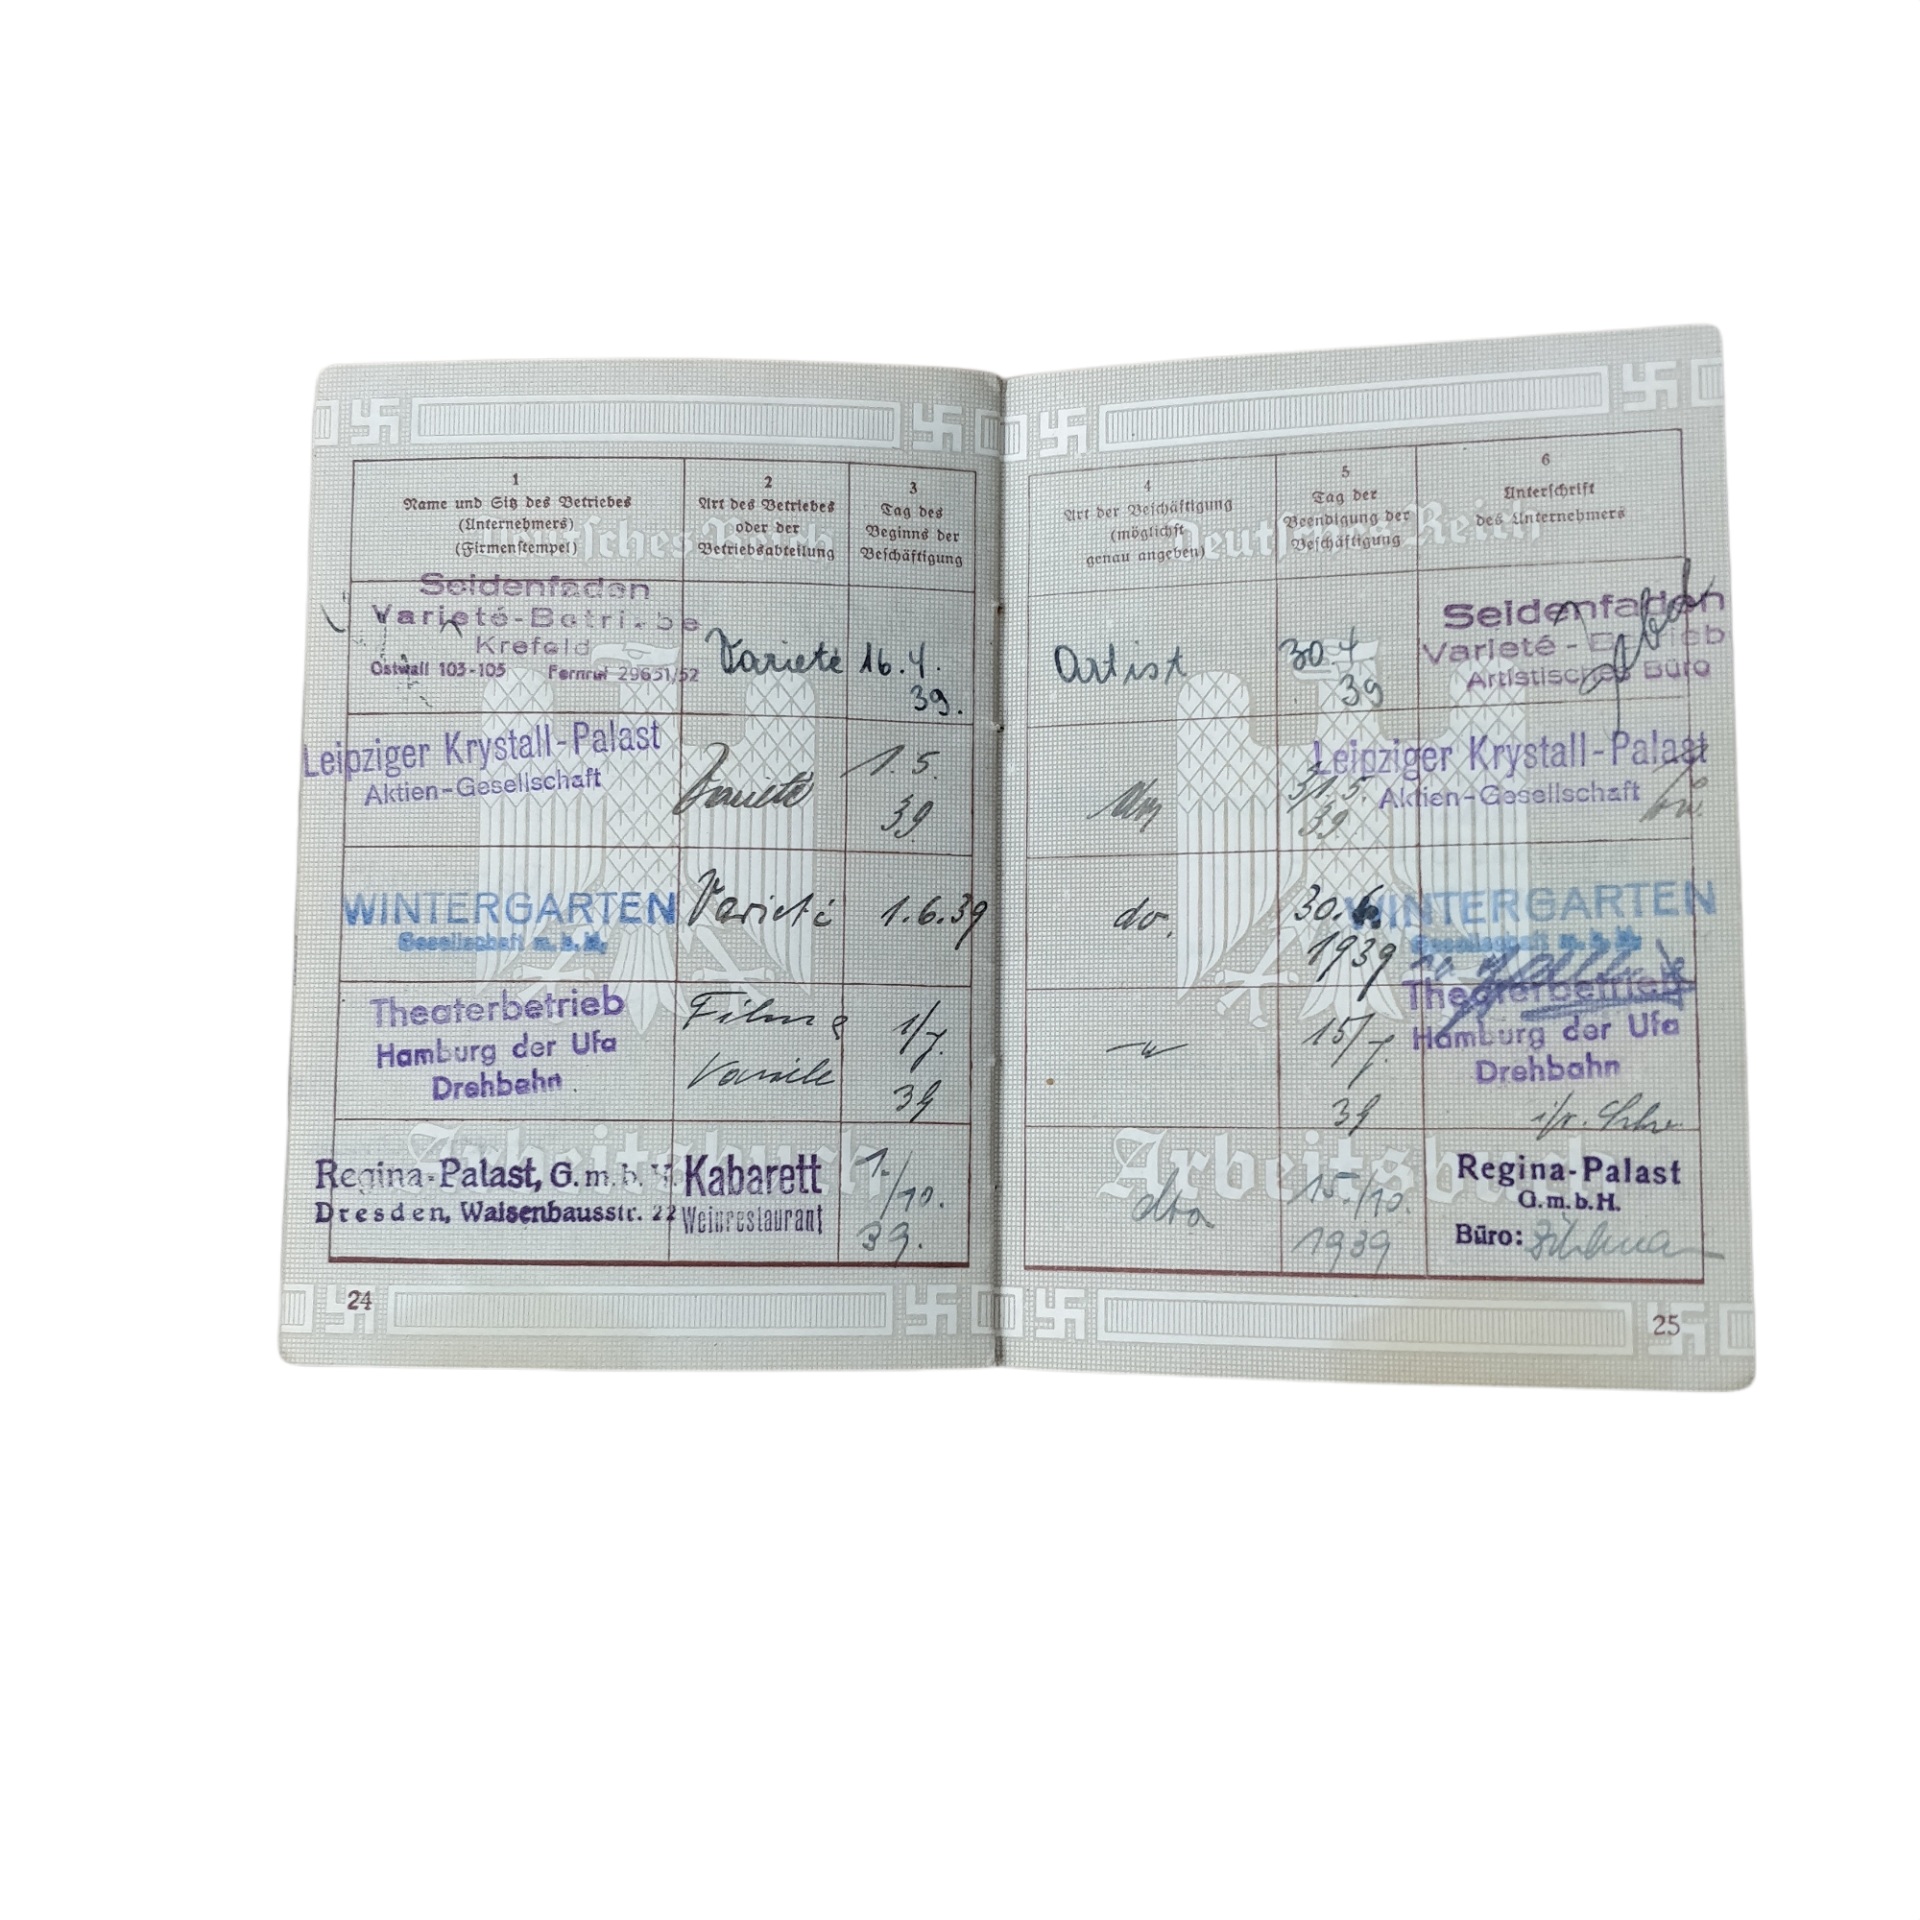 Deutsches Reich
1
Name und Sitz des Betriebes
(Unternehmers)
(Firmenstempel)
2
Art des Betriebes
oder der
Betriebsabteilung
3
Tag des
Beginns der
Beschäftigung
Seidenfaden
Varieté-Betriebe
Krefeld
Ostwall 103-105 Fernruf 29651/52
Varieté
16.4.
39.
Leipziger Krystall-Palast
Aktien-Gesellschaft
Varieté
1.5.
39
WINTERGARTEN
Gesellschaft m.b.H.
Varieté
1.6.39
Theaterbetrieb
Hamburg der Ufa
Drehbahn
Film &
Varieté
1/7.
39
Arbeitsbuch
Regina-Palast, G.m.b.H.
Dresden, Waisenhausstr. 22
Kabarett
Weinrestaurant
1./10.
39.
24
Deutsches Reich
4
Art der Beschäftigung
(möglichst
genau angeben)
5
Tag der
Beendigung der
Beschäftigung
6
Unterschrift
des Unternehmers
Artist
30.4
39
Seidenfaden
Varieté-Betrieb
Artistisches Büro
31.5.
39
Leipziger Krystall-Palast
Aktien-Gesellschaft
do.
30.6.
1939
WINTERGARTEN
Gesellschaft m.b.H.
15/7.
39
Theaterbetrieb
Hamburg der Ufa
Drehbahn
Arbeitsbuch
dto
15./10.
1939
Regina-Palast
G.m.b.H.
Büro:
25